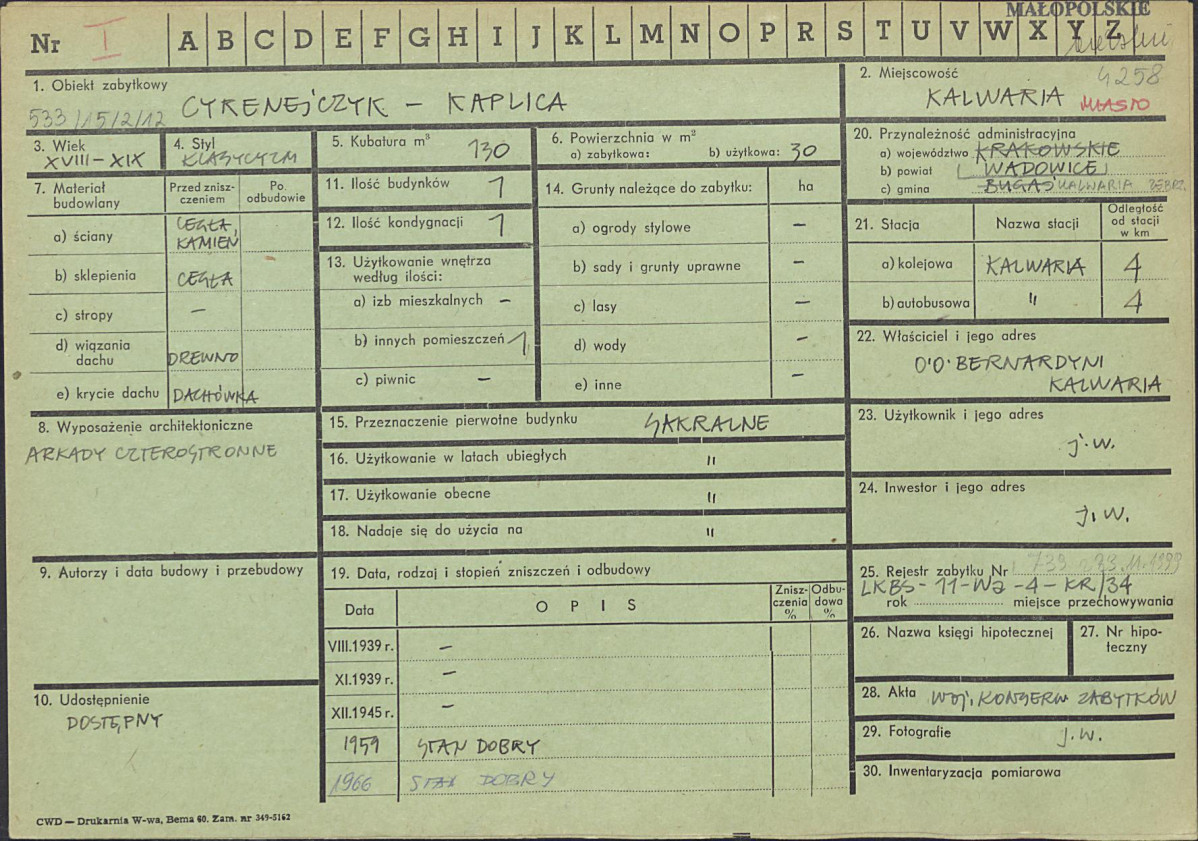 MAŁOPOLSKIE
Nr I A B C D E F G H I J K L M N O P R S T U V W X Y Z
1. Obiekt zabytkowy
CYRENEJCZYK – KAPLICA
533/15/2/12
2. Miejscowość
4258
KALWARIA MIASTO
3. Wiek
XVIII – XIX
4. Styl
KLASYCYZM
5. Kubatura m³ 130
6. Powierzchnia w m²
a) zabytkowa: b) użytkowa: 30
20. Przynależność administracyjna
a) województwo KRAKOWSKIE
b) powiat WADOWICE
c) gmina BUGAJ KALWARIA ZEBRZ.
7. Materiał budowlany
Przed zniszczeniem
Po odbudowie
a) ściany CEGŁA, KAMIEŃ
b) sklepienia CEGŁA
c) stropy –
d) wiązania dachu DREWNO
e) krycie dachu DACHÓWKA
11. Ilość budynków 1
12. Ilość kondygnacji 1
13. Użytkowanie wnętrza według ilości:
a) izb mieszkalnych –
b) innych pomieszczeń 1
c) piwnic –
14. Grunty należące do zabytku: ha
a) ogrody stylowe –
b) sady i grunty uprawne –
c) lasy –
d) wody –
e) inne –
21. Stacja Nazwa stacji Odległość od stacji w km
a) kolejowa KALWARIA 4
b) autobusowa " 4
22. Właściciel i jego adres
O'O' BERNARDYNI
KALWARIA
8. Wyposażenie architektoniczne
ARKADY CZTEROSTRONNE
15. Przeznaczenie pierwotne budynku SAKRALNE
16. Użytkowanie w latach ubiegłych "
17. Użytkowanie obecne "
18. Nadaje się do użycia na "
23. Użytkownik i jego adres
j.w.
24. Inwestor i jego adres
j.w.
9. Autorzy i data budowy i przebudowy
19. Data, rodzaj i stopień zniszczeń i odbudowy
Data OPIS Zniszczenia % Odbudowa %
VIII.1939 r. –
XI.1939 r. –
XII.1945 r. –
1959 STAN DOBRY
1966 STAN DOBRY
25. Rejestr zabytku Nr 739
LKBS-11-Wa-4-KR/34
rok miejsce przechowywania
26. Nazwa księgi hipotecznej
27. Nr hipoteczny
10. Udostępnienie
DOSTĘPNY
28. Akta WOJ. KONSERW ZABYTKÓW
29. Fotografie j.w.
30. Inwentaryzacja pomiarowa
CWD — Drukarnia W-wa, Bema 60. Zam. nr 349-5162